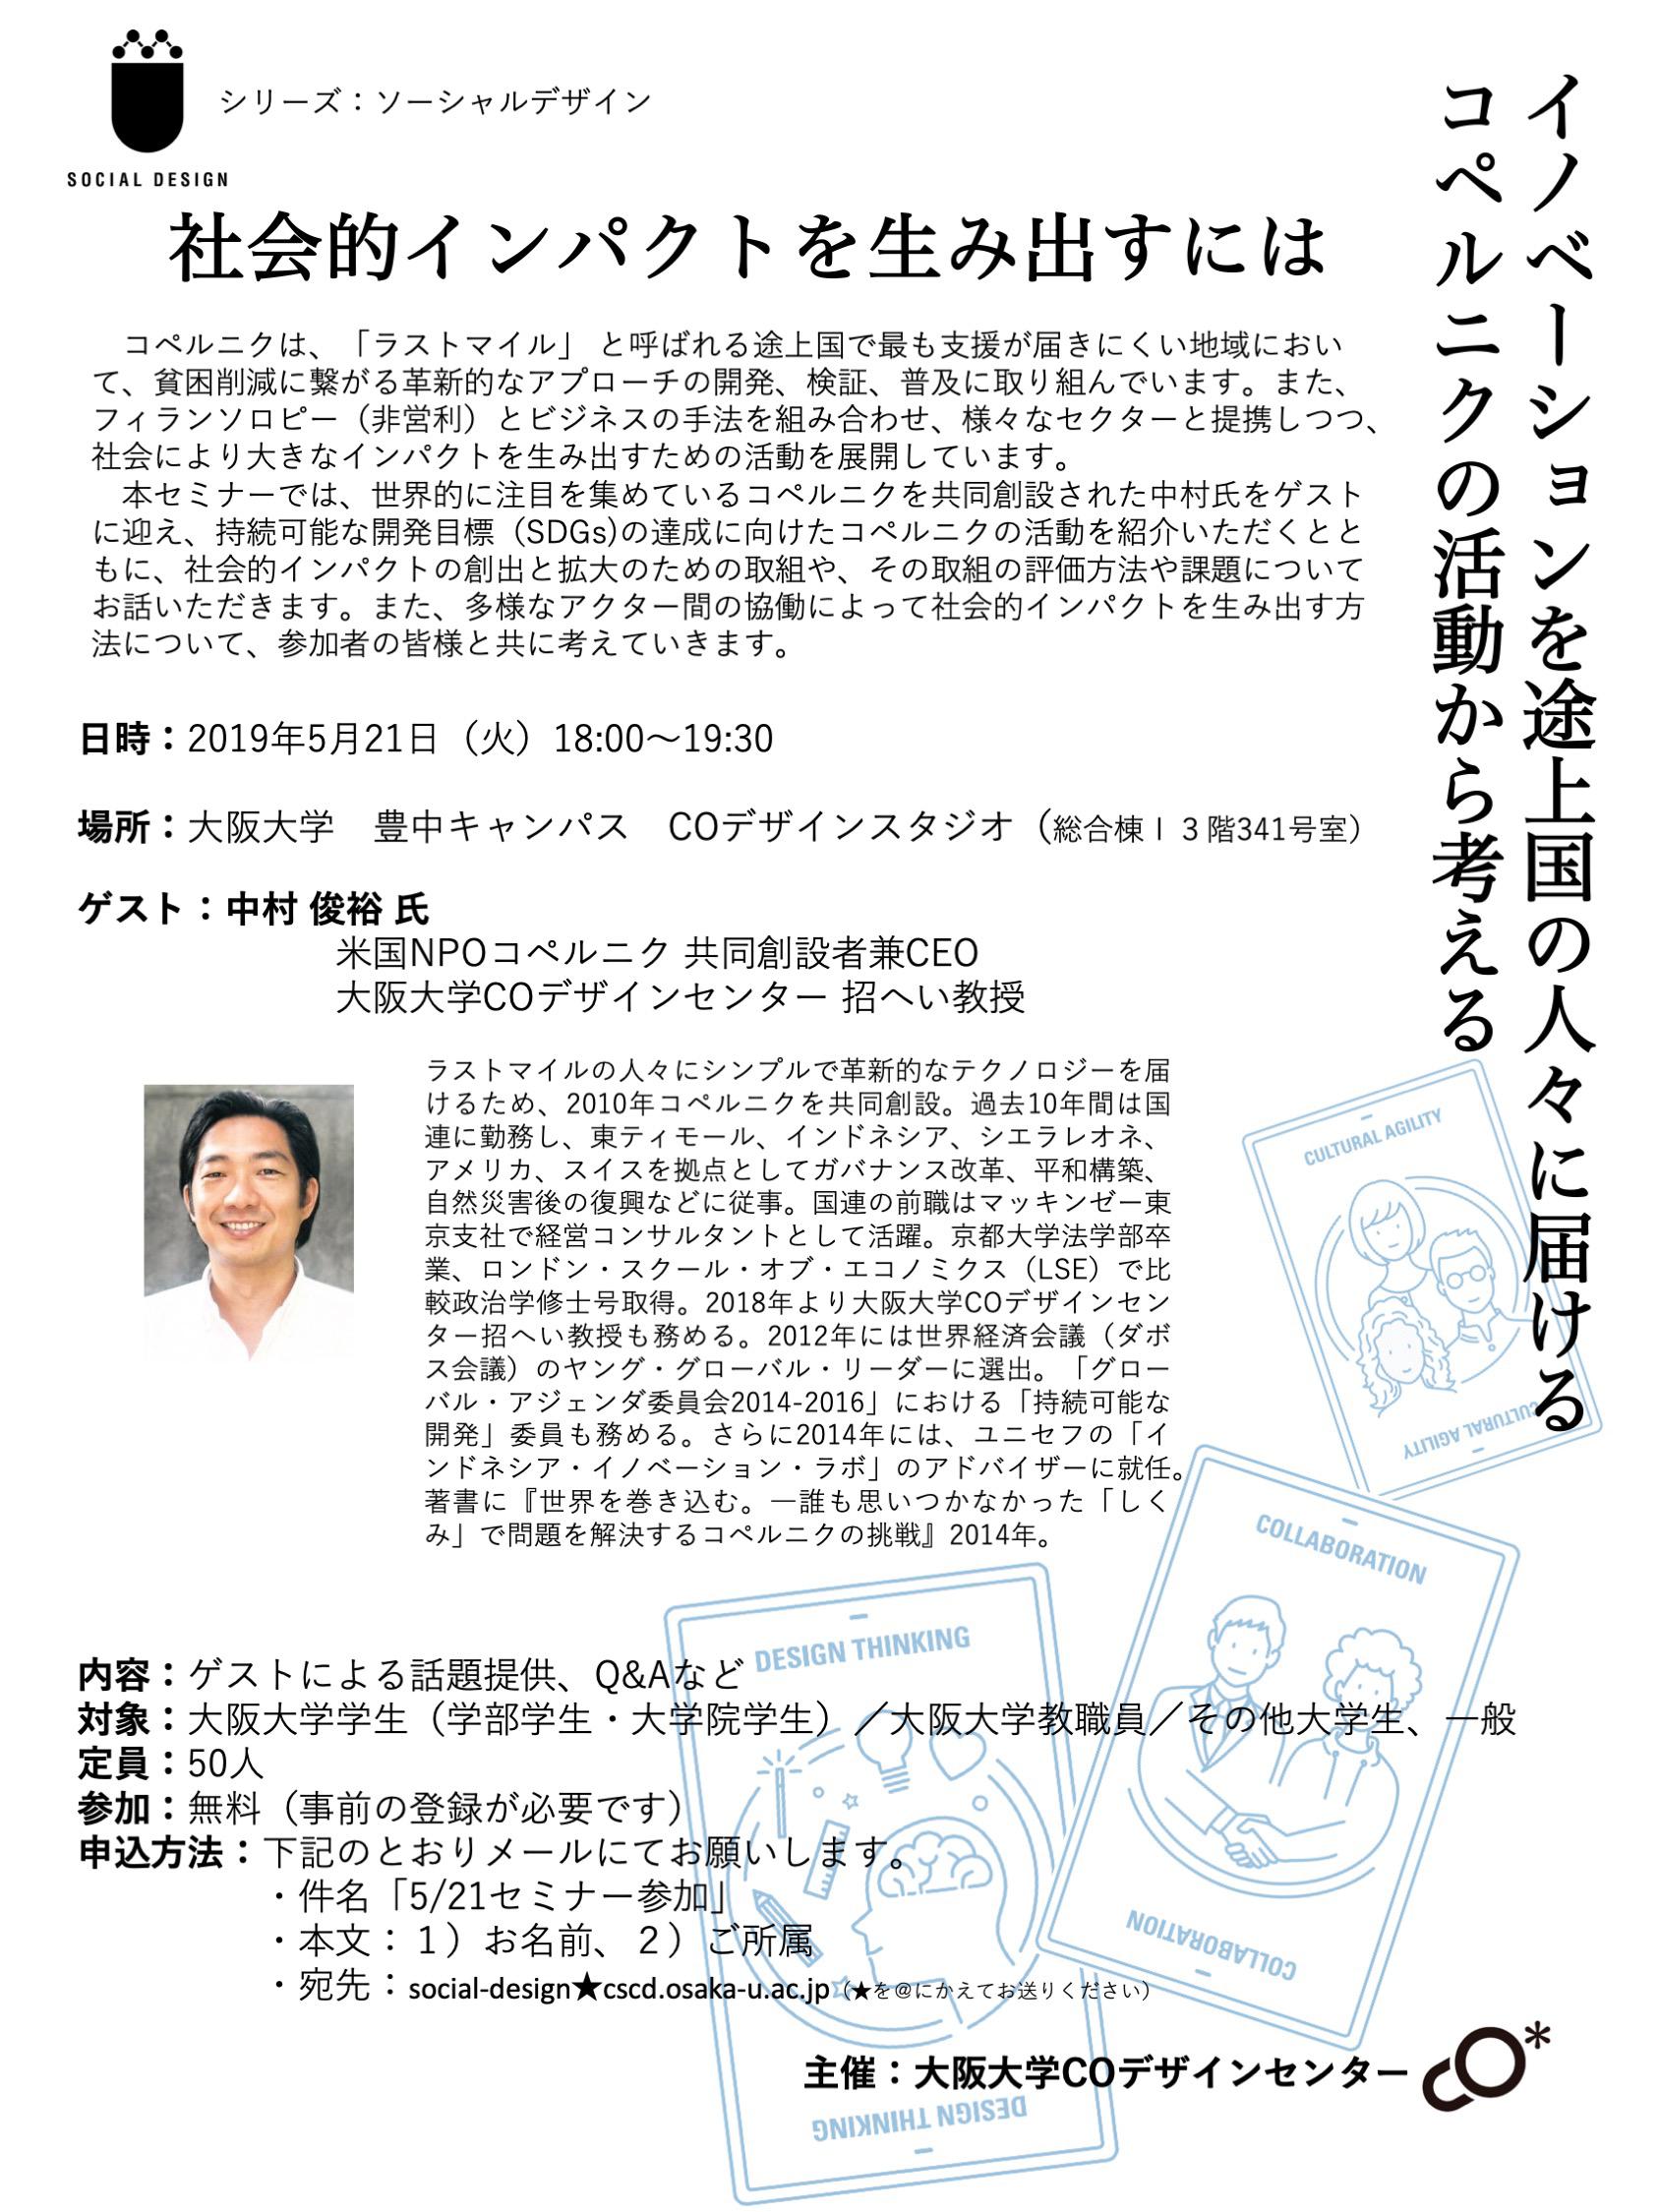 シリーズ：ソーシャルデザイン
SOCIAL DESIGN
社会的インパクトを生み出すには
イノベーションを途上国の人々に届ける
コペルニクの活動から考える
コペルニクは、「ラストマイル」 と呼ばれる途上国で最も支援が届きにくい地域におい
て、貧困削減に繋がる革新的なアプローチの開発、検証、普及に取り組んでいます。また、
フィランソロピー（非営利）とビジネスの手法を組み合わせ、様々なセクターと提携しつつ、
社会により大きなインパクトを生み出すための活動を展開しています。
本セミナーでは、世界的に注目を集めているコペルニクを共同創設された中村氏をゲスト
に迎え、持続可能な開発目標（SDGs)の達成に向けたコペルニクの活動を紹介いただくとと
もに、社会的インパクトの創出と拡大のための取組や、その取組の評価方法や課題について
お話いただきます。また、多様なアクター間の協働によって社会的インパクトを生み出す方
法について、参加者の皆様と共に考えていきます。
日時：2019年5月21日（火）18:00～19:30
場所：大阪大学　豊中キャンパス　COデザインスタジオ（総合棟Ⅰ ３階341号室）
ゲスト：中村 俊裕 氏
米国NPOコペルニク 共同創設者兼CEO
大阪大学COデザインセンター 招へい教授
ラストマイルの人々にシンプルで革新的なテクノロジーを届
けるため、2010年コペルニクを共同創設。過去10年間は国
連に勤務し、東ティモール、インドネシア、シエラレオネ、
アメリカ、スイスを拠点としてガバナンス改革、平和構築、
自然災害後の復興などに従事。国連の前職はマッキンゼー東
京支社で経営コンサルタントとして活躍。京都大学法学部卒
業、ロンドン・スクール・オブ・エコノミクス（LSE）で比
較政治学修士号取得。2018年より大阪大学COデザインセン
ター招へい教授も務める。2012年には世界経済会議（ダボ
ス会議）のヤング・グローバル・リーダーに選出。「グロー
バル・アジェンダ委員会2014-2016」における「持続可能な
開発」委員も務める。さらに2014年には、ユニセフの「イ
ンドネシア・イノベーション・ラボ」のアドバイザーに就任。
著書に『世界を巻き込む。―誰も思いつかなかった「しく
み」で問題を解決するコペルニクの挑戦』2014年。
CULTURAL AGILITY
CULTURAL AGILITY
COLLABORATION
COLLABORATION
DESIGN THINKING
内容：ゲストによる話題提供、Q&Aなど
対象：大阪大学学生（学部学生・大学院学生）／大阪大学教職員／その他大学生、一般
定員：50人
参加：無料（事前の登録が必要です）
申込方法：下記のとおりメールにてお願いします。
・件名「5/21セミナー参加」
・本文：１）お名前、２）ご所属
・宛先：social-design★cscd.osaka-u.ac.jp（★を@にかえてお送りください）
主催：大阪大学COデザインセンター
DESIGN THINKING